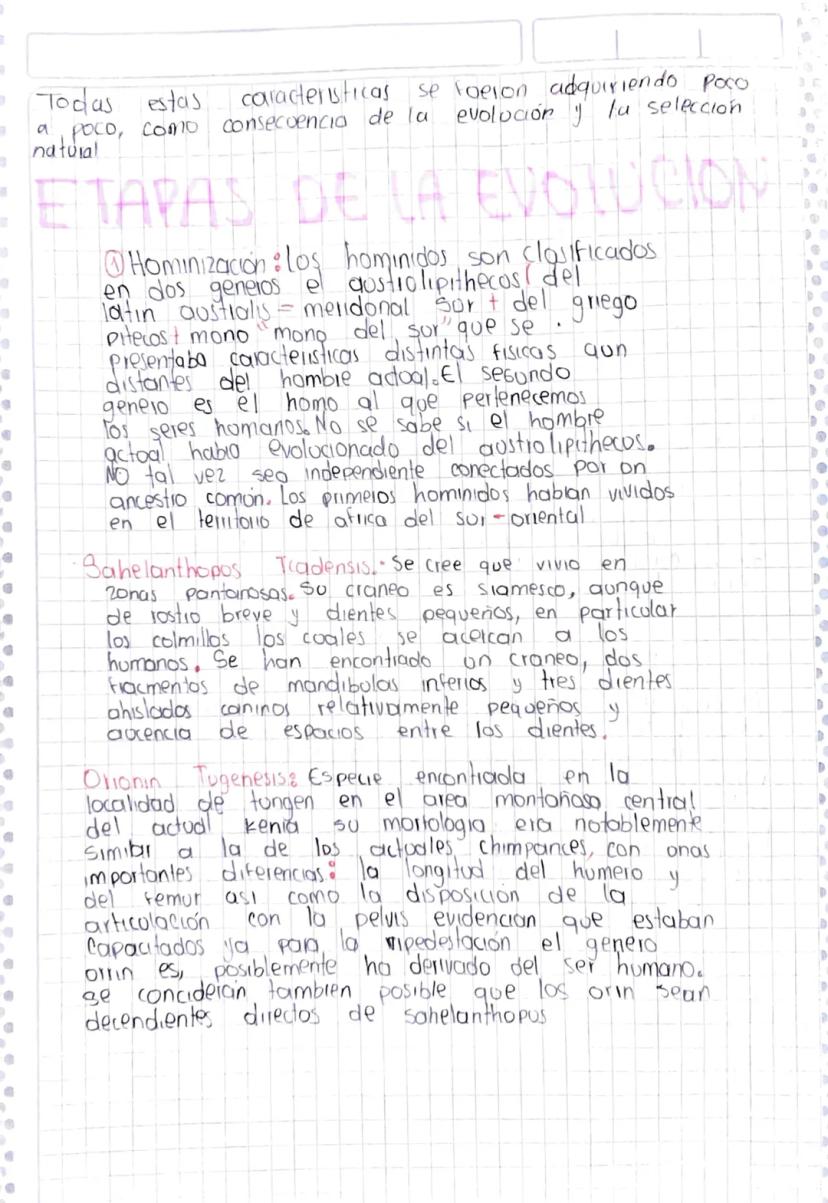 Todas estas caracteristicas se fueron adquiriendo poco
a poco, como consecuencia de la evolución y la selección
natural
ETAPAS DE LA EVOLUCION
① Hominización: los hominidos son clasificados
en dos generos el austrolipithecos (del
latin australis = meridonal sur + del griego
pitecos + mono "mono del sur" que se .
presentaba caracteristicas distintas fisicas aun
distantes del hombre actual. El segundo
genero es el homo al que pertenecemos
los seres humanos. No se sabe si el hombre
actual habia evolucionado del austrolipithecus.
NO tal vez sea independiente conectados por un
ancestro común. Los primeros hominidos habian vividos
en el territorio de africa del sur-oriental
Sahelanthopos Tcadensis. Se cree que vivio en
zonas pantanosas. Su craneo es siamesco, aunque
de rostro breve y dientes pequeños, en particular
los colmillos los cuales se acercan a los
humanos. Se han encontrado un craneo, dos
fracmentos de mandibulas inferios y tres dientes
ahislados caninos relativamente pequeños y
aucencia de espacios entre los dientes.
Orronin Tugenesis: Especie encontrada en la
localidad de tungen en el area montañosa central
del actual kenia su morfologia era notablemente
similar a la de los actuales chimpances, con unas
importantes diferencias: la longitud del humero y
del femur asi como la disposición de la
articolación con la pelvis evidencian que estaban
capacitados ya para la vipedestación el genero
orrin es, posiblemente ha derivado del ser humano.
se conciderán tambien posible que los orin sean
decendientes directos de sahelanthopus